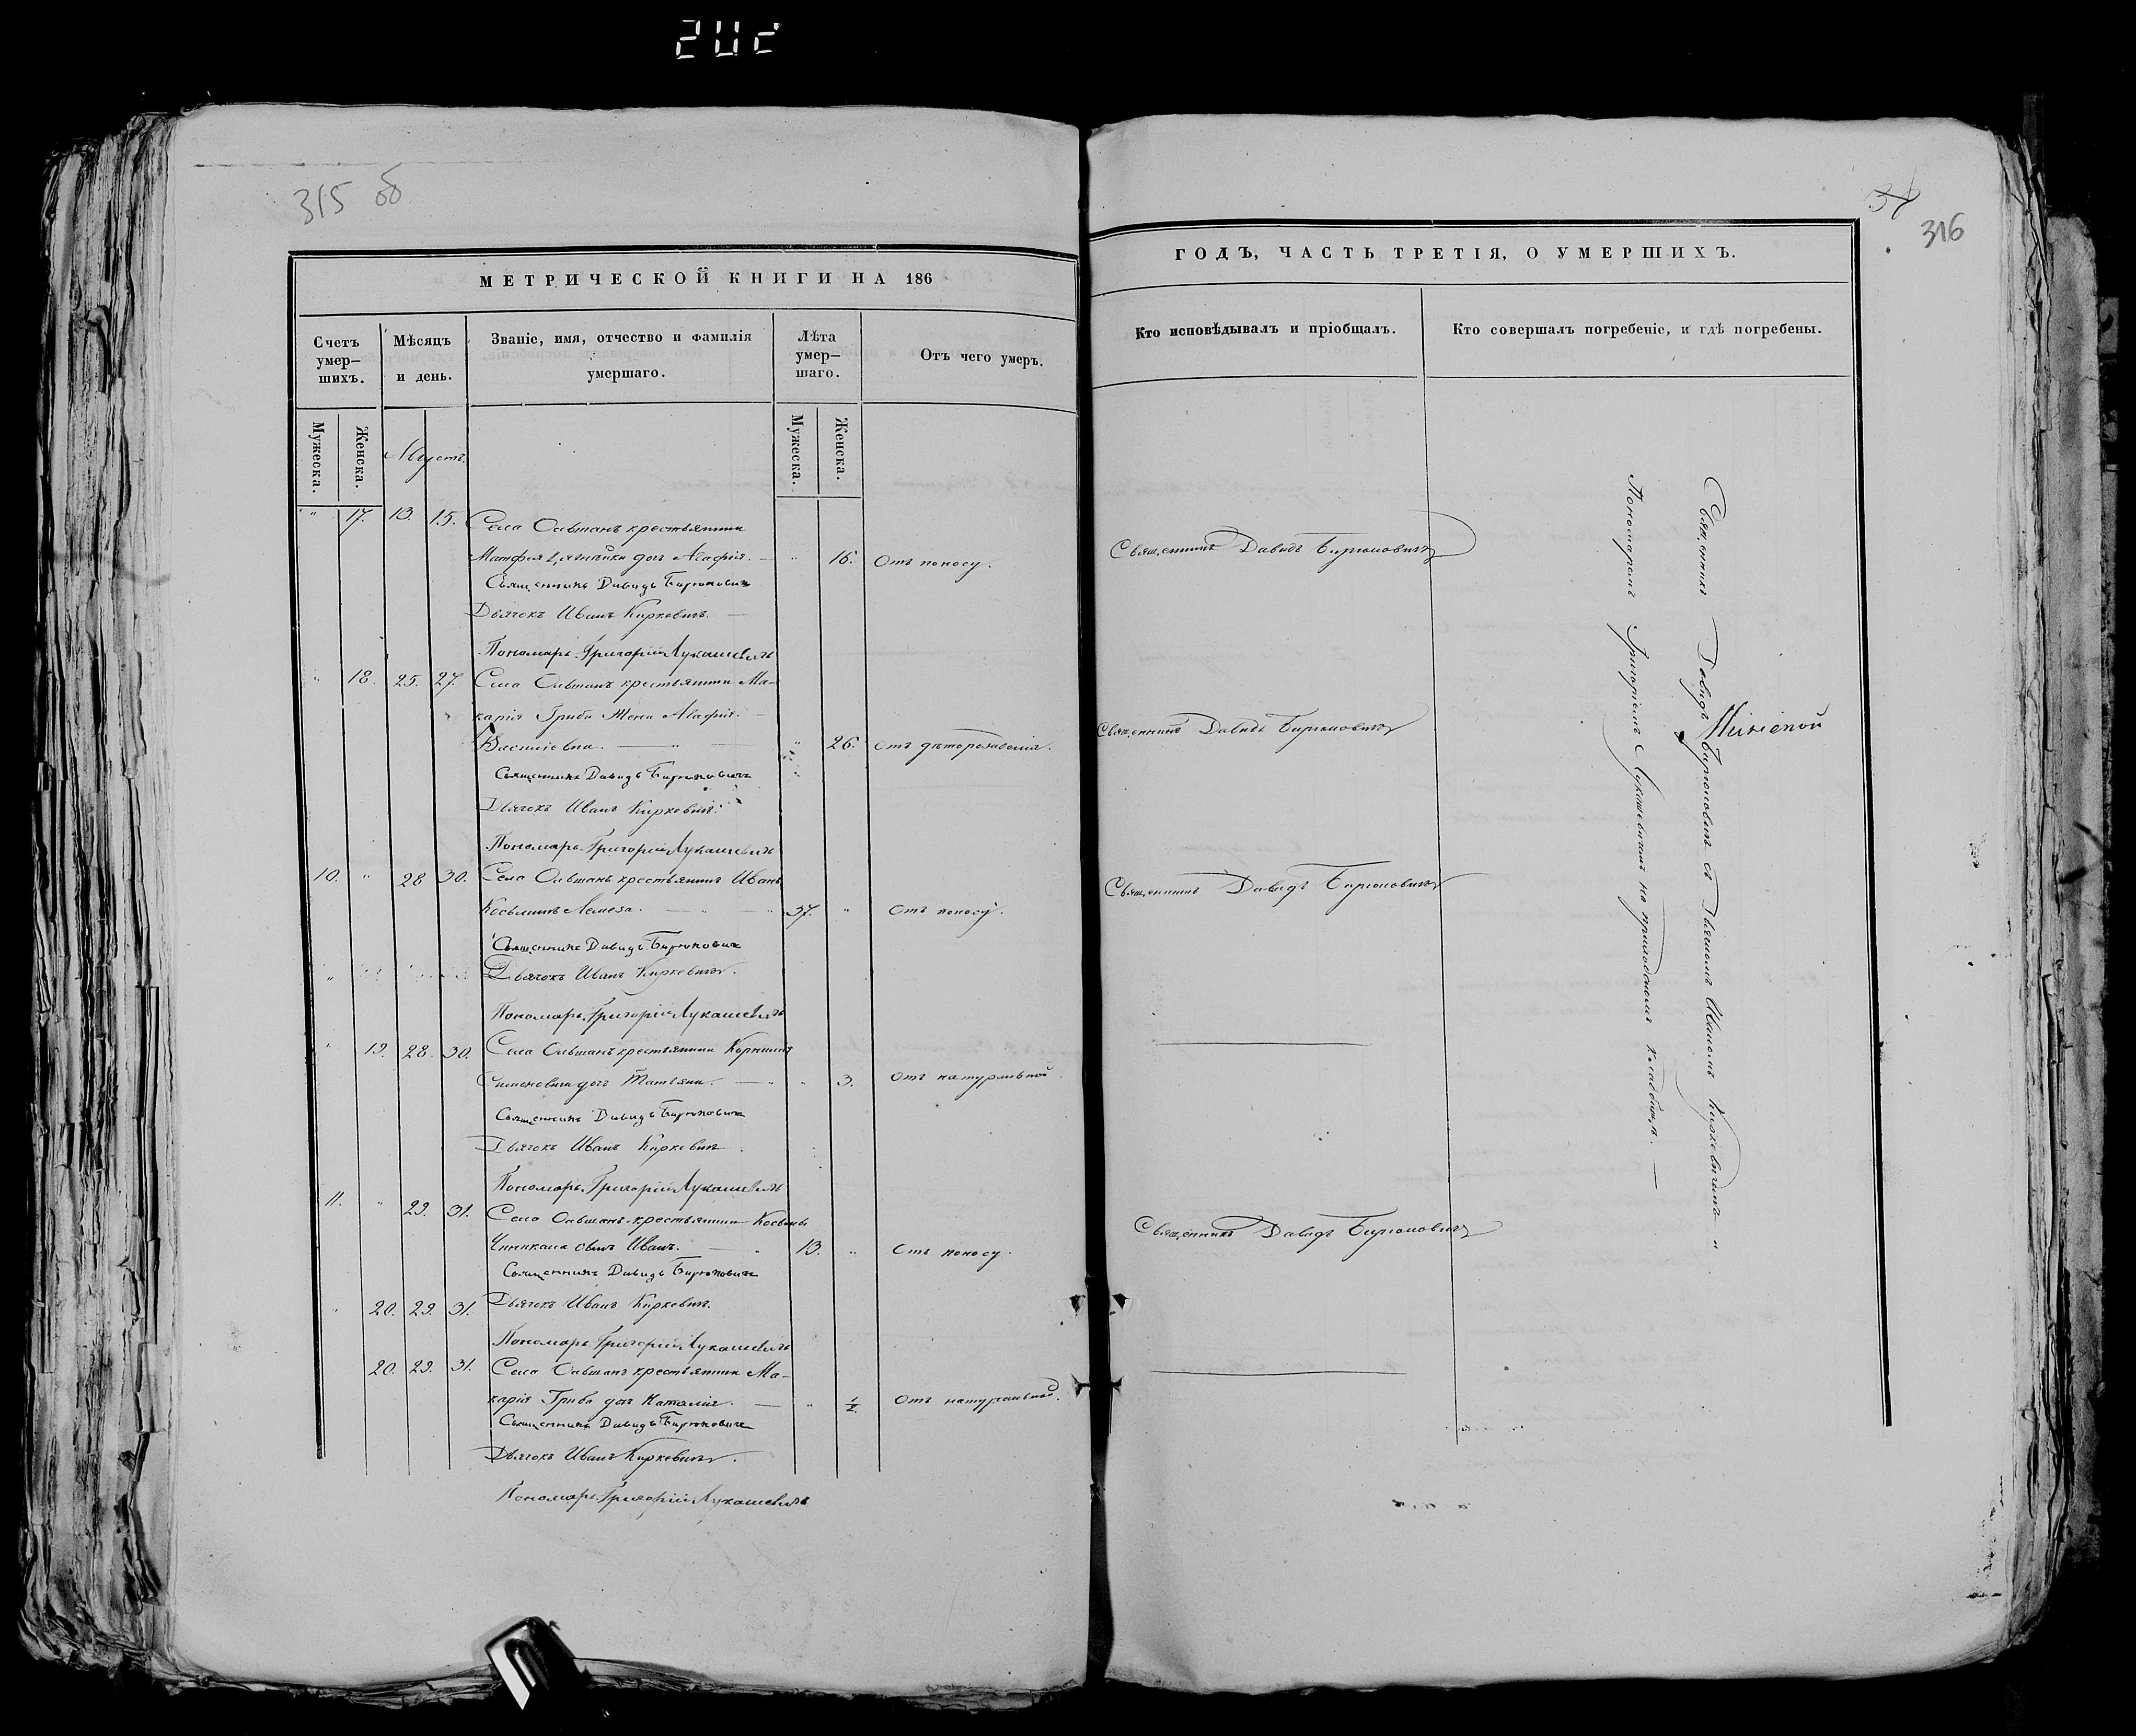 315 об
МЕТРИЧЕСКОЙ КНИГИ НА 186
Счетъ умер-шихъ.
Мѣсяцъ и день.
Званіе, имя, отчество и фамилія умершаго.
Лѣта умер-шаго.
Отъ чего умеръ.
Мужеска.
Женска.
Августъ.
Мужеска.
Женска.
" 17. 13. 15. Села Ольшанъ крестьянина
Матфея дочь Агафія. — " 16. Отъ поносу.
Священникъ Давидъ Бирюковичъ
Дьячокъ Иванъ Киркевичъ. —
Пономарь Григорій Лукашевичъ
" 18. 25. 27. Села Ольшанъ крестьянина Ма-
карія Гриба жена Агафія. —
Василіевна. — " — " 26. Отъ дѣторожденія.
Священникъ Давидъ Бирюковичъ
Дьячокъ Иванъ Киркевичъ.
Пономарь Григорій Лукашевичъ
10. " 28 30. Села Ольшанъ крестьянинъ Иванъ
Косьминъ Лемеза. — " — " 37. " Отъ поносу.
Священникъ Давидъ Бирюковичъ
Дьячокъ Иванъ Киркевичъ.
Пономарь Григорій Лукашевичъ
" 19. 28. 30. Села Ольшанъ крестьянина Корнилія
Симоновича дочь Татьяна. — " " 3. Отъ натуральной.
Священникъ Давидъ Бирюковичъ
Дьячокъ Иванъ Киркевичъ.
Пономарь Григорій Лукашевичъ
11. " 29. 31. Села Ольшанъ крестьянина Косьмы
сынъ Иванъ. — " 13. " Отъ поносу.
Священникъ Давидъ Бирюковичъ
20. 29. 31. Дьячокъ Иванъ Киркевичъ.
Пономарь Григорій Лукашевичъ
20. 29. 31. Села Ольшанъ крестьянина Ма-
карія Гриба дочь Наталія. — " ½ Отъ натуральной.
Священникъ Давидъ Бирюковичъ
Дьячокъ Иванъ Киркевичъ.
Пономарь Григорій Лукашевичъ
316
ГОДЪ, ЧАСТЬ ТРЕТІЯ, О УМЕРШИХЪ.
Кто исповѣдывалъ и пріобщалъ.
Кто совершалъ погребеніе, и гдѣ погребены.
Священникъ Давидъ Бирюковичъ
Священникъ Давидъ Бирюковичъ
Священникъ Давидъ Бирюковичъ
Священникъ Давидъ Бирюковичъ
Священникъ Давидъ Бирюковичъ съ Дьячкомъ Иваномъ Киркевичемъ и
Пономаремъ Григоріемъ Лукашевичемъ на приходскомъ кладбищѣ. —